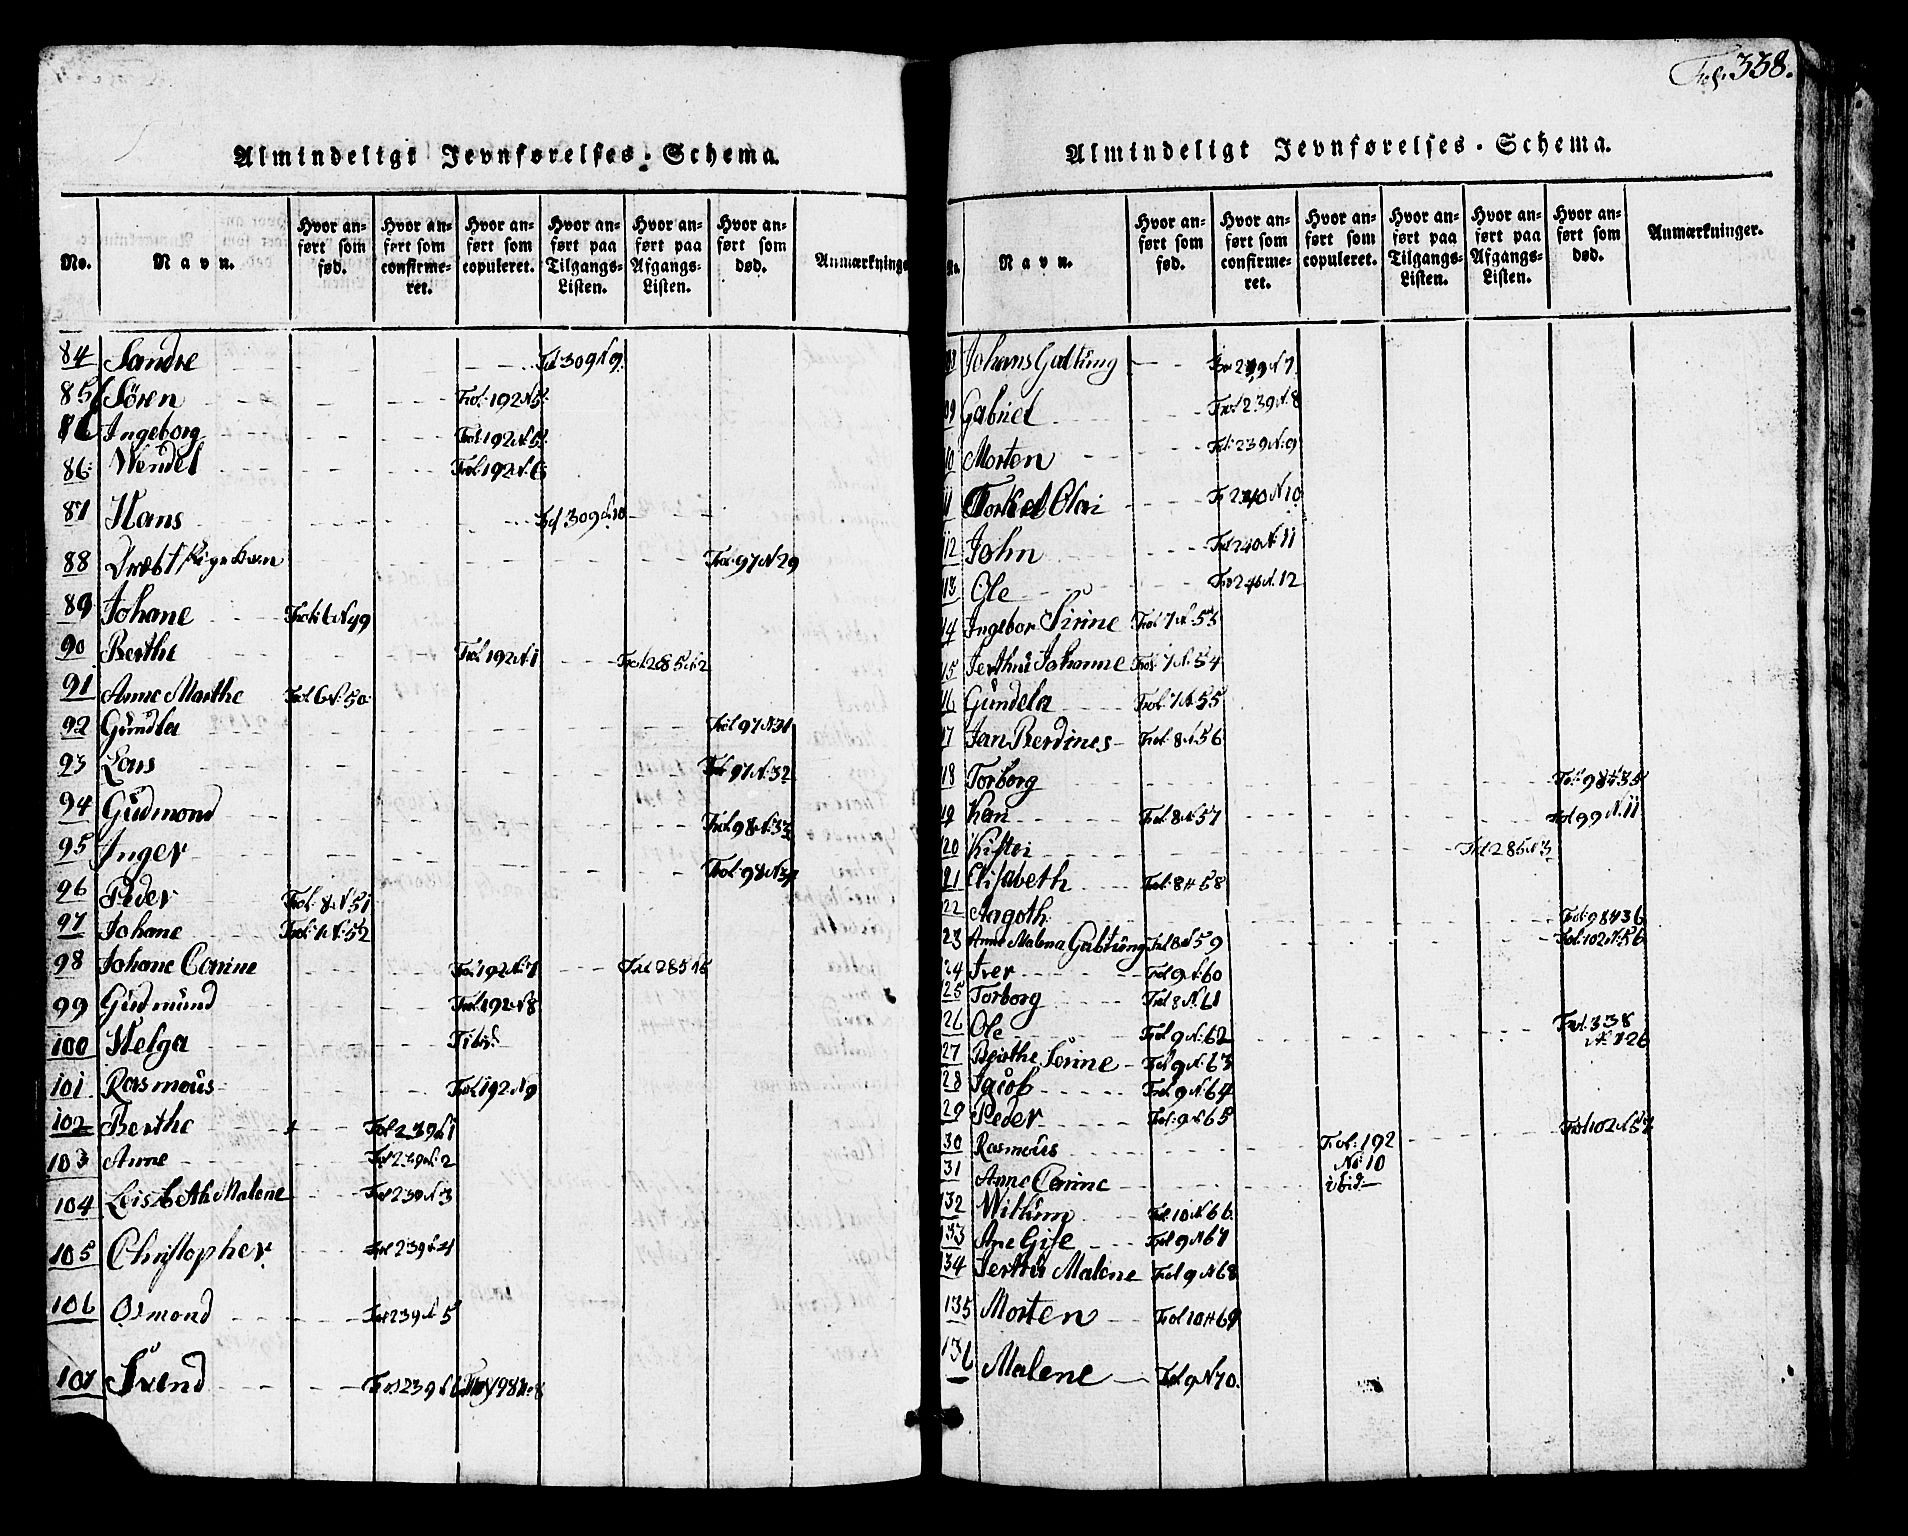 Fol. 338.
Almindeligt Jevnførelses-Schema.
No. Navn. Hvor anført som fød. Hvor anført som confirmeret. Hvor anført som copuleret. Hvor anført paa Tilgangs-Listen. Hvor anført paa Afgangs-Listen. Hvor anført som død. Anmærkninge
84 Sandre Fol 309 N 9.
85 Sören Fol. 192 N. 5.
Ingeborg Fol. 192 N. 5.
86. Wendel Fol. 192 N. 6
87 Hans Fol 309 N. 10
88 Fol. 97 N 29
89 Johane Fol: 6 N 49
90 Berthe Fol 192 N. 1 Fol. 285 N. 2
91 Anne Marthe Fol. 6 N. 50.
92 Gundla Fol 97 N. 31
93 Lars Fol 97 N. 32
94 Gudmond Fol. 98 N. 33
95 Inger Fol. 98 N. 34
96 Peder Fol. 8 N. 51
97 Johane Fol. N. 52
98 Johane Carine Fol. 192 N. 7 Fol. 285
99 Gudmund Fol. 192 N. 8
100 Helga
101 Rasmous Fol. 192 N. 9
102 Berthe Fol. 239 N. 1
103 Anne Fol 239 N. 2
104 Leisbeth Malene Fol 239 N. 3
105 Christopher. Fol 239 N. 4
106 Osmond Fol 239 N. 5
107 Svend Fol 239 N. 6
Almindeligt Jevnførelses-Schema.
No. Navn. Hvor anført som fød. Hvor anført som confirmeret. Hvor anført som copuleret. Hvor anført paa Tilgangs-Listen. Hvor anført paa Afgangs-Listen. Hvor anført som død. Anmærkninger.
Johans Galtung Fol 239 N 7
Gabriel Fol 239 N. 8
10 Morten Fol. 239 N. 9
11 Torkel Olai Fol 240 N 10
12 John Fol 240 N. 11
13 Ole Fol 240 N. 12
14 Ingebor Sirine Fol 7 N. 53
15 Jerthru Johanne Fol. 7 N. 54
16 Gundela Fol. 7 N. 55
17 Jan Berdines Fol. 8 N. 56
18 Torborg Fol. 98 N. 35
19 Kari Fol. 8 N. 57 Fol 99 N. 11
20 Kistri Fol 286 N. 3
21 Elisabeth Fol. 8 N. 58
22 Aagoth Fol. 98 N 36
23 Anne Malena Galtung Fol 8 N. 59 Fol. 102 N. 56
24 Iver Fol 9 N. 60
25 Torborg Fol 8 N. 61
26 Ole Fol. 9 N. 62 Fol. 338 N. 126
27 Berthe Serine Fol 9 N. 63
28 Jacob Fol. 9 N. 64
29 Peder Fol. 9 N. 65 Fol 102 N. 57
30 Rasmous Fol. 192 No. 10
31 Anne Carine ibid
132 Willum Fol. 10 N. 66.
133 Ane Gise Fol 9 N 67
134 Jerthru Malene Fol 9 N 68
135 Morten Fol 10 N 69
136 Malene Fol. 9 N 70.